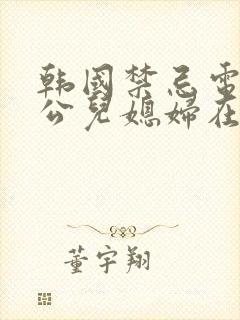 韩国禁忌电
公儿媳婦在
董宇翔